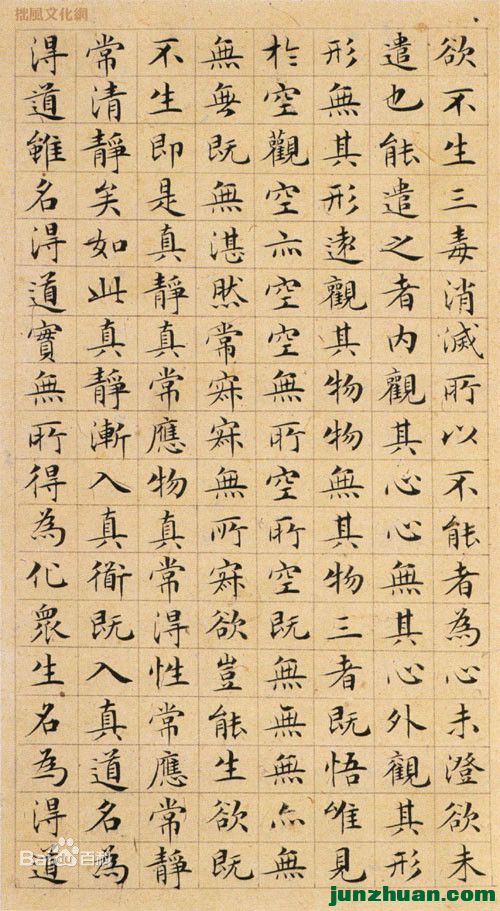 拙風文化網
欲不生三毒消滅所以不能者為心未澄欲未
遣也能遣之者內觀其心心無其心外觀其形
形無其形遠觀其物物無其物三者既悟唯見
於空觀空亦空空無所空所空既無無無亦無
無無既無湛然常寂寂無所寂欲豈能生欲既
不生即是真靜真常應物真常得性常應常靜
常清靜矣如此真靜漸入真衜既入真道名為
得道雖名得道實無所得為化眾生名為得道
Bai百科
junzhuan.com